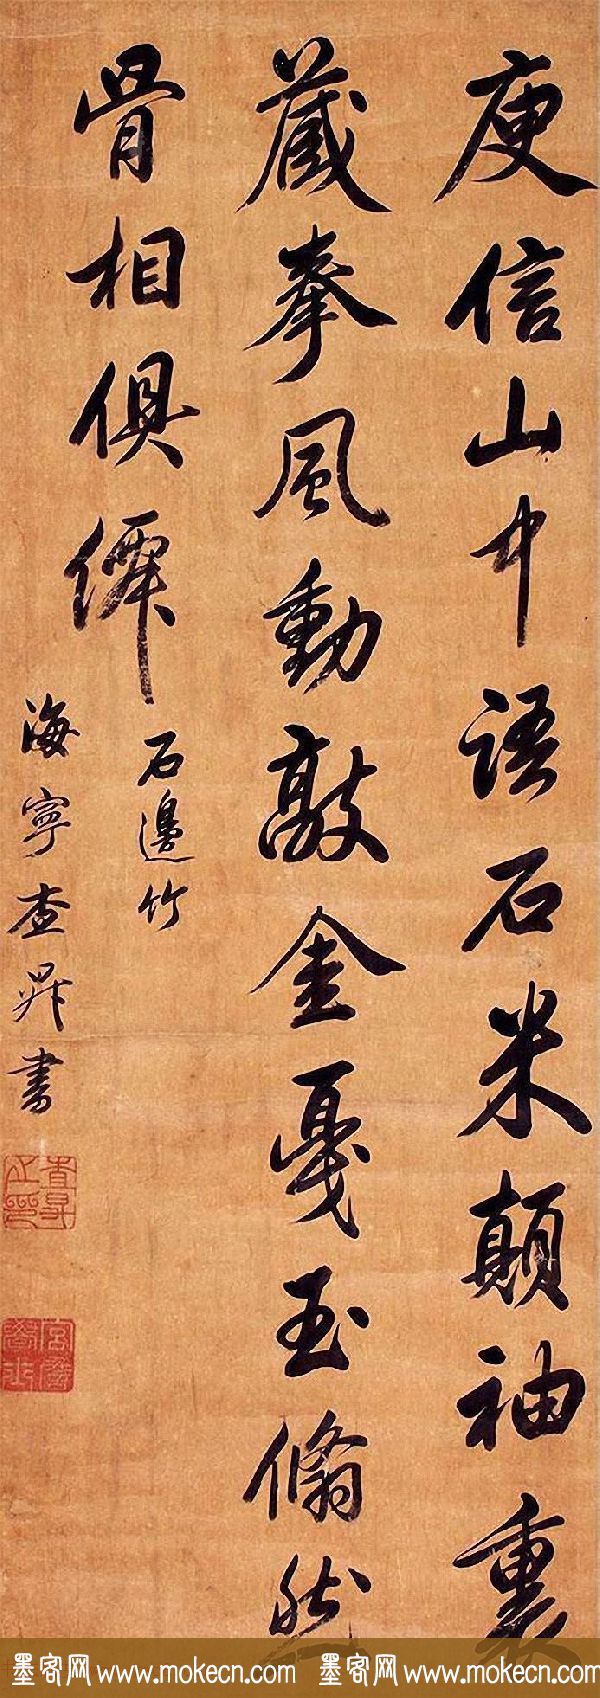 庾信山中語石米顛袖裏
藏拳風動敲金戛玉翛然
骨相俱僊
石邊竹
海寧查昇書
查昇之印
墨客网 www.mokecn.com 墨客网 www.mokecn.com